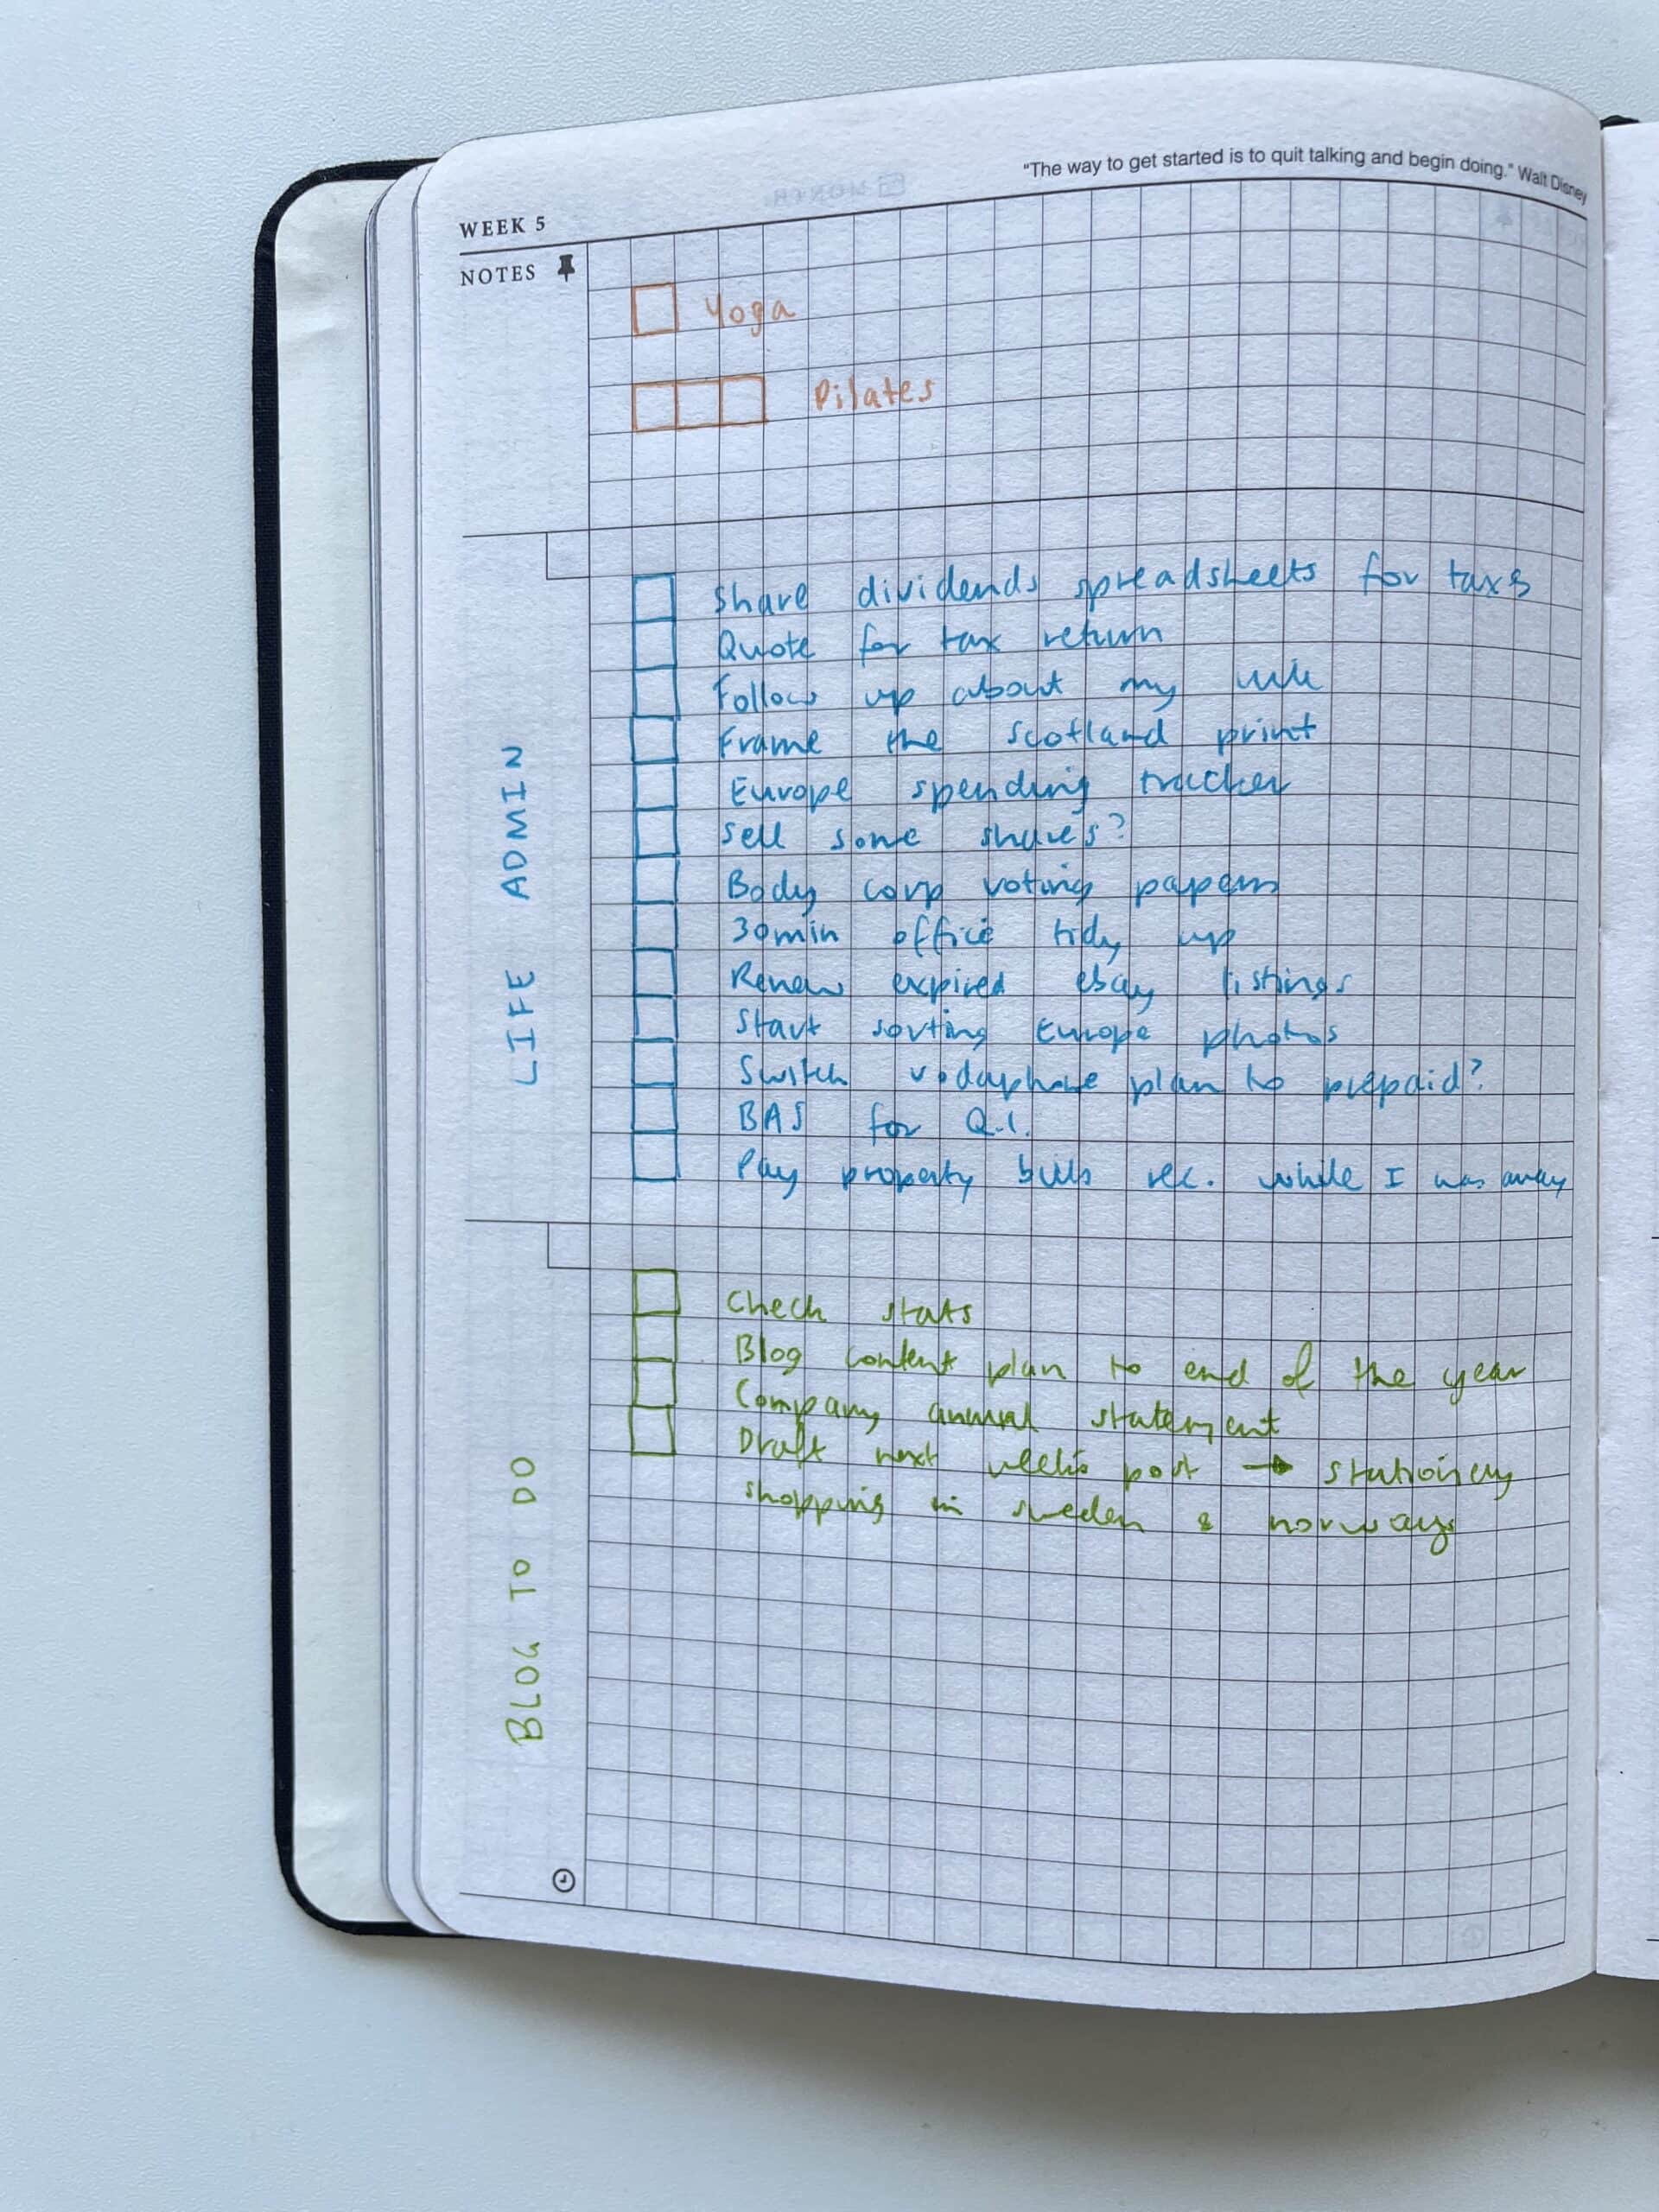 "The way to get started is to quit talking and begin doing." Walt Disney
WEEK 5
NOTES
Yoga
Pilates
LIFE ADMIN
Share dividends spreadsheets for taxs
Quote for tax return
Follow up about my
Frame the Scotland print
Europe spending tracker
Sell some shares?
Body corp voting papers
30min office tidy up
Renew expired ebay listings
Start sorting Europe photos
Switch vodaphone plan to prepaid?
BAS for Q.1.
Pay property bills rec. while I was away
BLOG TO DO
Check stats
Blog content plan to end of the year
Company annual statement
Draft next week's post → stationery
shopping in sweden & norway